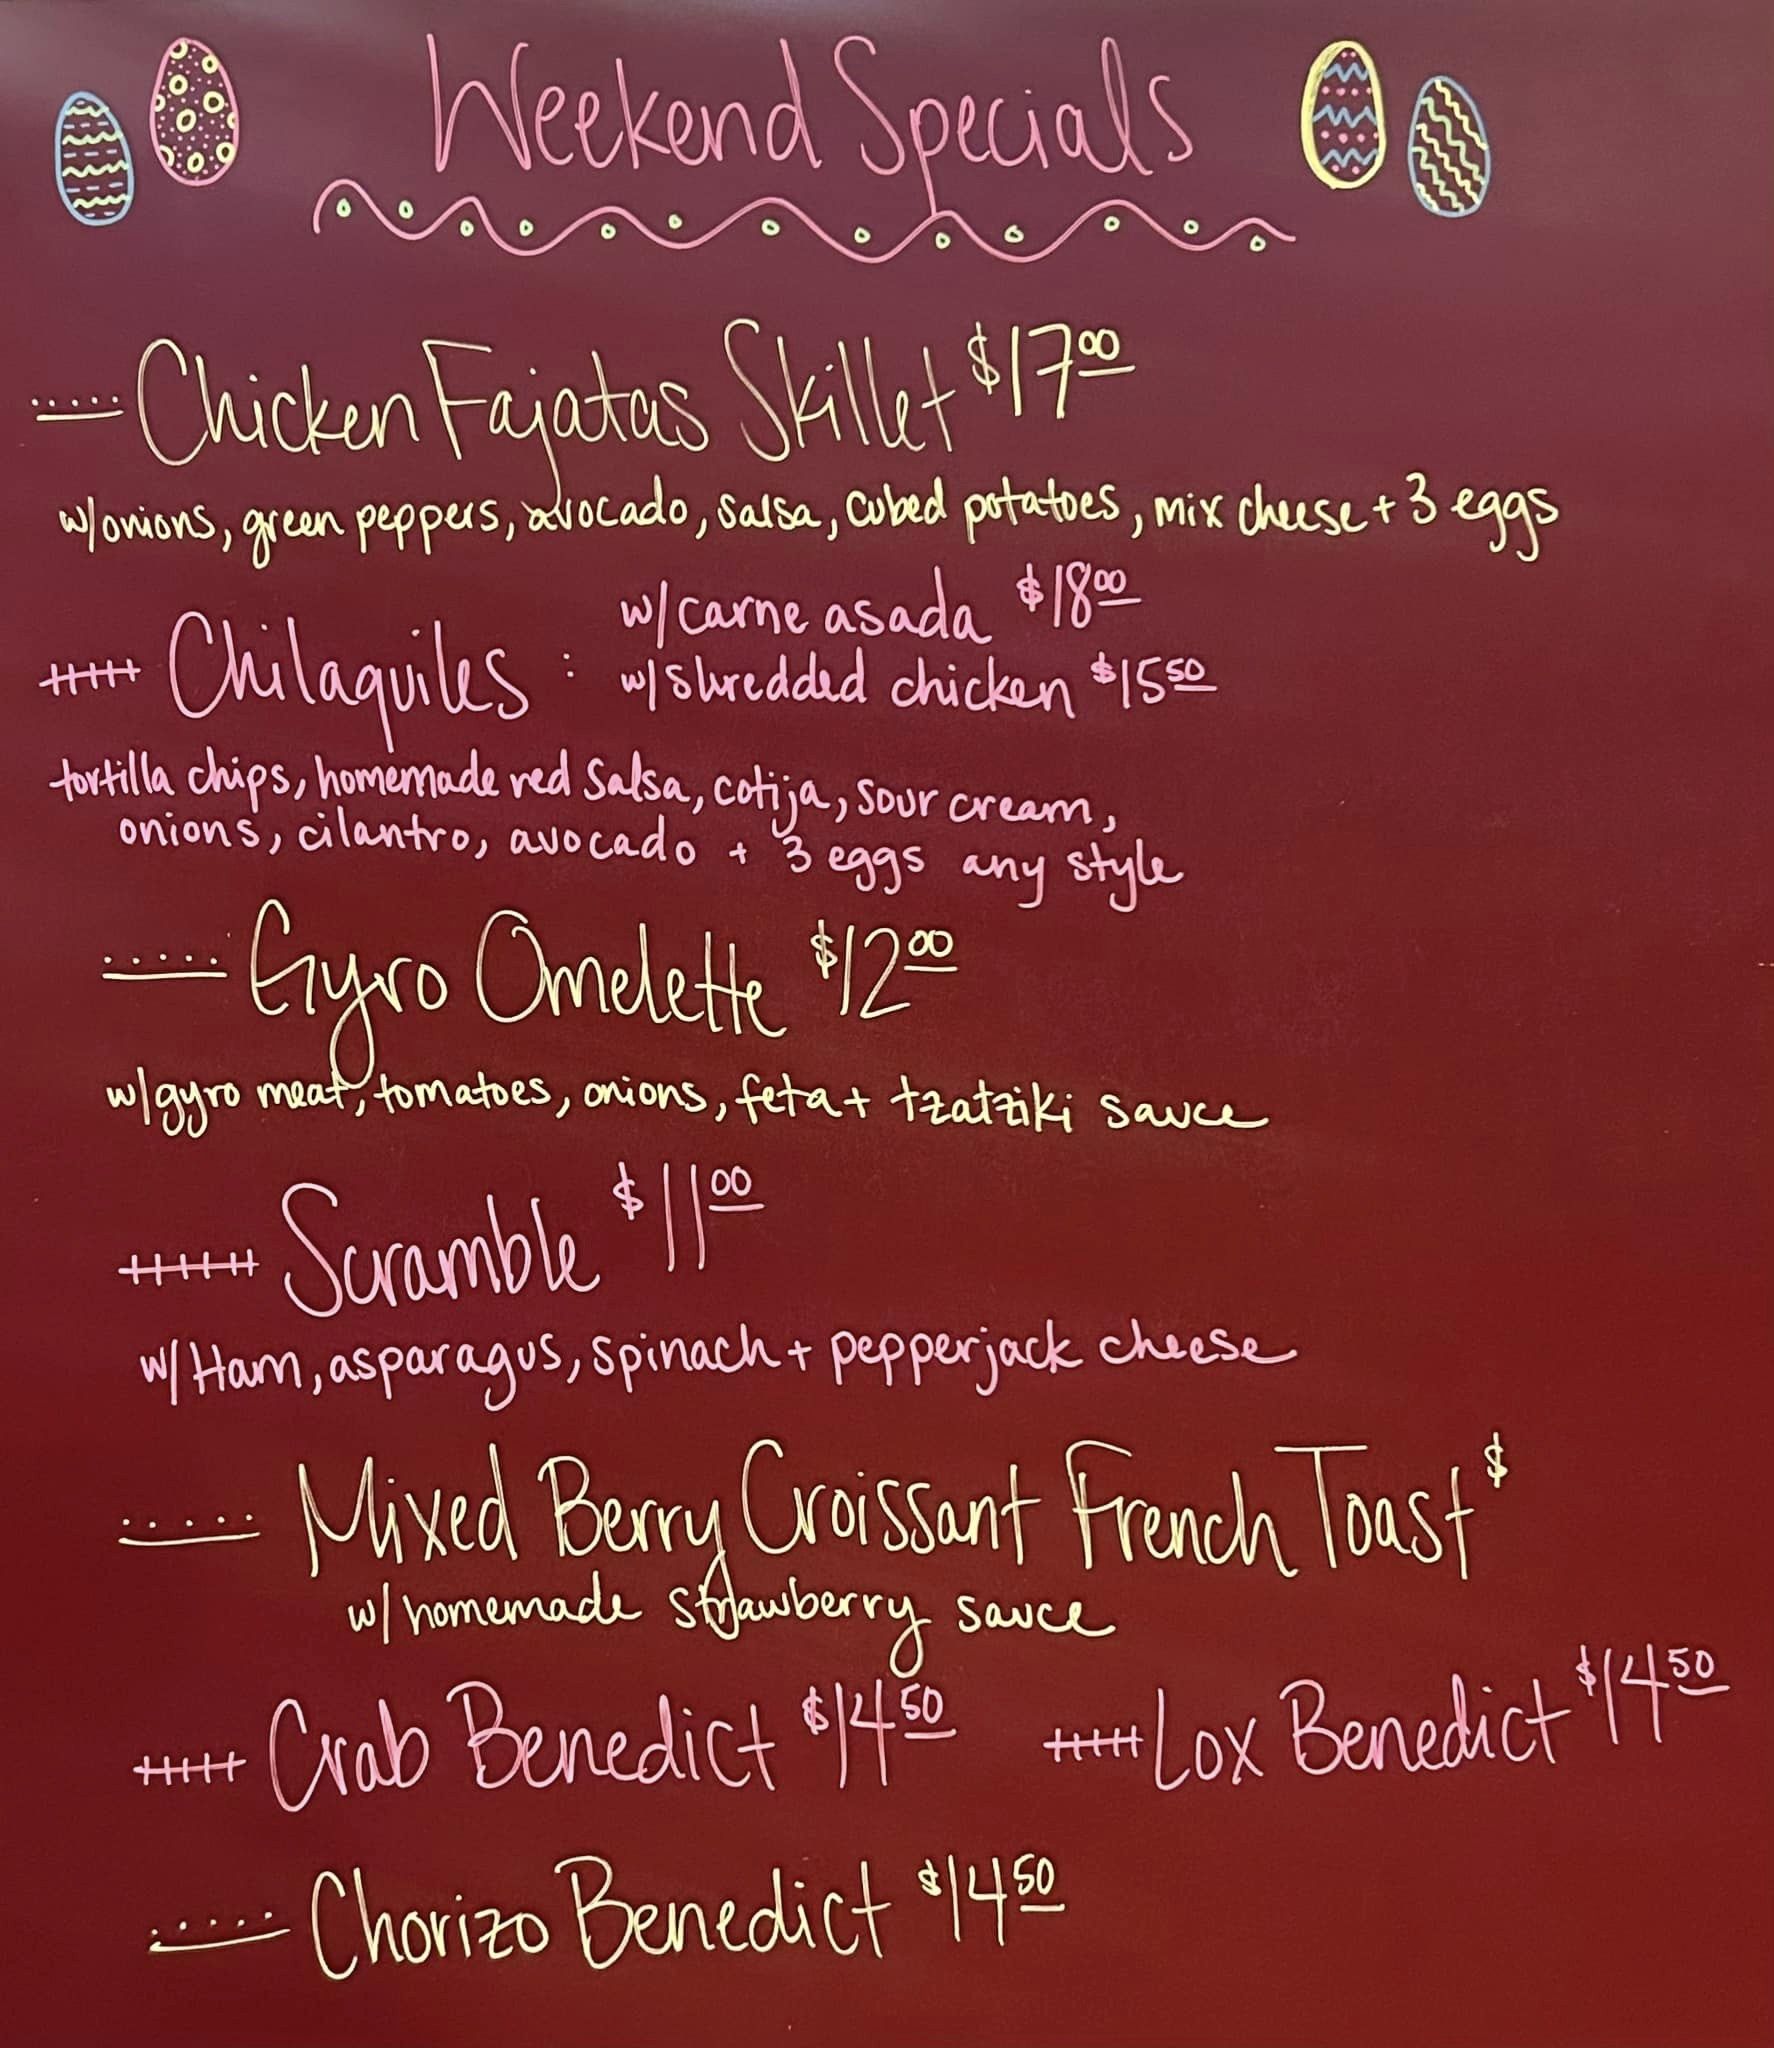 Weekend Specials
Chicken Fajatas Skillet $17.00
w/onions, green peppers, avocado, salsa, cubed potatoes, mix cheese + 3 eggs
Chilaquiles : w/carne asada $18.00
w/shredded chicken $15.50
tortilla chips, homemade red salsa, cotija, sour cream,
onions, cilantro, avocado + 3 eggs any style
Gyro Omelette $12.00
w/gyro meat, tomatoes, onions, feta + tzatziki sauce
Scramble $11.00
w/Ham, asparagus, spinach + pepperjack cheese
Mixed Berry Croissant French Toast $
w/homemade strawberry sauce
Crab Benedict $14.50 Lox Benedict $14.50
Chorizo Benedict $14.50